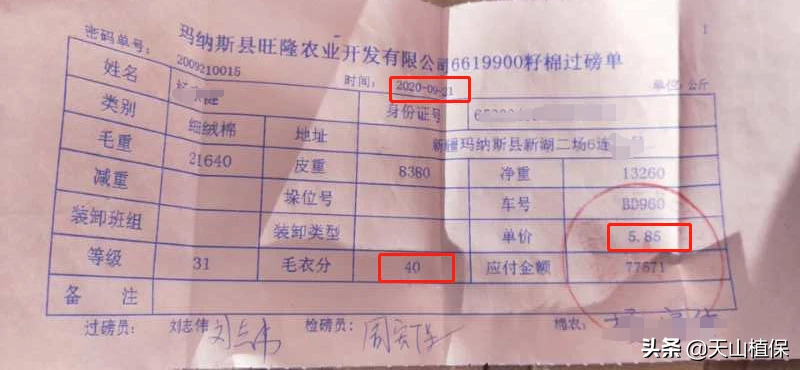 玛纳斯县旺隆农业开发有限公司6619900籽棉过磅单
密码单号: 2009210015 时间: 2020-09-21 单位: 公斤
姓名 身份证号
类别 细绒棉 地址 新疆玛纳斯县新湖二场6连
毛重 21640 皮重 8380 净重 13260
减重 垛位号 车号 BD960
装卸班组 装卸类型 单价 5.85
等级 31 毛衣分 40 应付金额 77571
备注
过磅员: 刘志伟 刘志伟 检磅员: 棉农:
头条 @天山植保